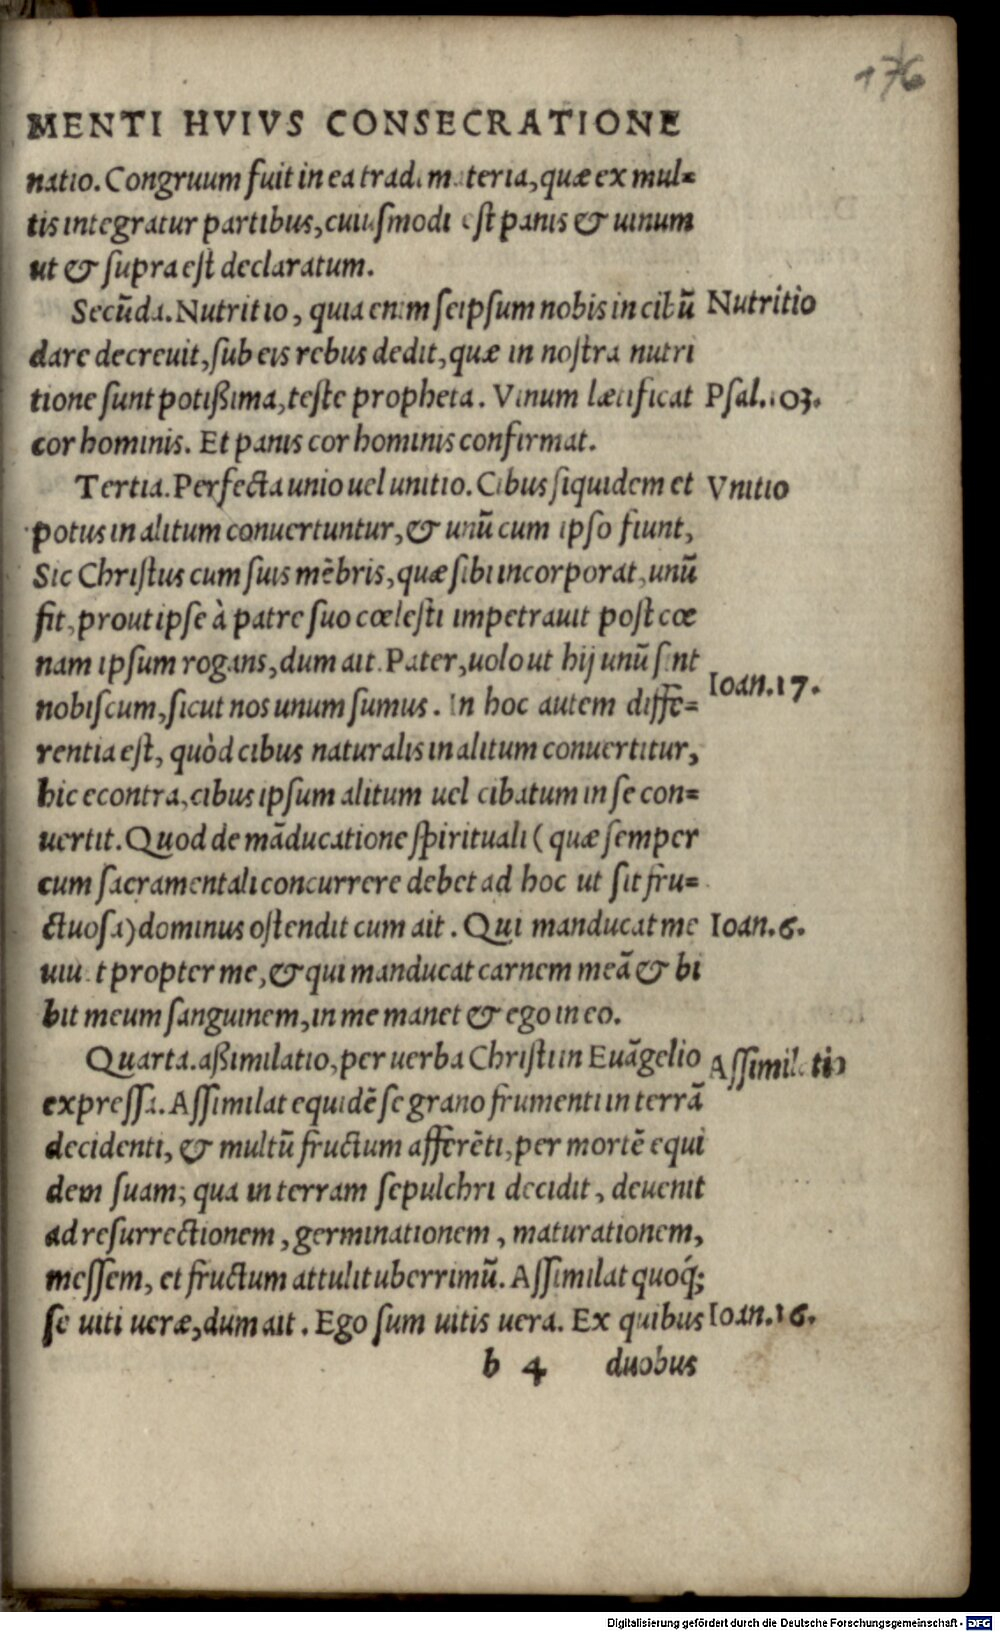 176
MENTI HVIVS CONSECRATIONE
natio. Congruum fuit in ea tradi materia, quæ ex mul=
tis integratur partibus, cuiuſmodi eſt panis & uinum
ut & ſupra eſt declaratum.
Secūda. Nutritio, quia enim ſeipſum nobis in cibū Nutritio
dare decreuit, ſub eis rebus dedit, quæ in noſtra nutri
tione ſunt potißima, teſte propheta. Vinum lætificat Pſal.103.
cor hominis. Et panis cor hominis confirmat.
Tertia. Perfecta unio uel unitio. Cibus ſiquidem et Vnitio
potus in alitum conuertuntur, & unū cum ipſo fiunt,
Sic Chriſtus cum ſuis mēbris, quæ ſibi incorporat, unū
fit, prout ipſe à patre ſuo cœleſti impetrauit poſt cœ
nam ipſum rogans, dum ait. Pater, uolo ut hij unū ſint
nobiſcum, ſicut nos unum ſumus. In hoc autem diffe= Ioan.17.
rentia eſt, quòd cibus naturalis in alitum conuertitur,
hic econtra, cibus ipſum alitum uel cibatum in ſe con=
uertit. Quod de māducatione ſpirituali (quæ ſemper
cum ſacramentali concurrere debet ad hoc ut ſit fru=
ctuoſa) dominus oſtendit cum ait. Qui manducat me Ioan.6.
uiuet propter me, & qui manducat carnem meā & bi
bit meum ſanguinem, in me manet & ego in eo.
Quarta. aßimilatio, per uerba Chriſti in Euāgelio Aſſimilatio
expreſſa. Aſſimilat equidē ſe grano frumenti in terrā
decidenti, & multū fructum afferēti, per mortē equi
dem ſuam; qua in terram ſepulchri decidit, deuenit
ad reſurrectionem, germinationem, maturationem,
meſſem, et fructum attulit uberrimū. Aſſimilat quoq́;
ſe uiti ueræ, dum ait. Ego ſum uitis uera. Ex quibus Ioan.16.
b 4 duobus
Digitalisierung gefördert durch die Deutsche Forschungsgemeinschaft - DFG